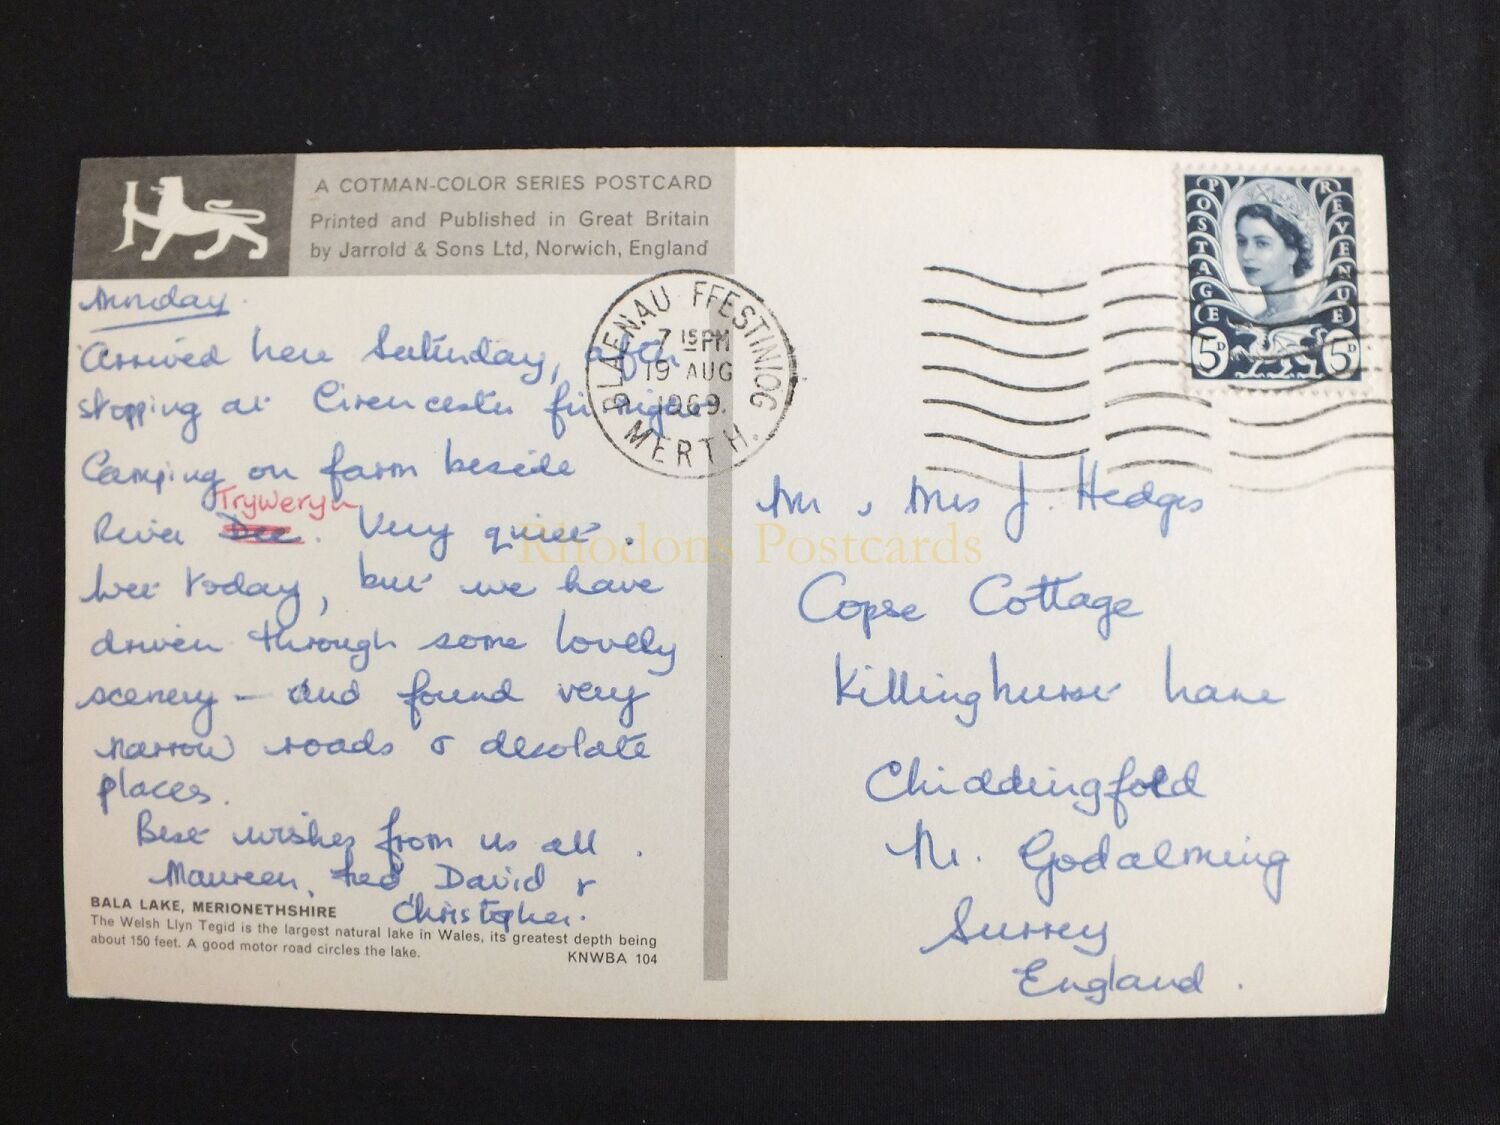 A COTMAN-COLOR SERIES POSTCARD
Printed and Published in Great Britain
by Jarrold & Sons Ltd, Norwich, England
Sunday.
Arrived here Saturday, after
stopping at Cirencester first night.
Camping on farm beside
Tryweryn
River Dee. Very quiet.
Wet today, but we have
driven through some lovely
scenery – and found very
narrow roads & desolate
places.
Best wishes from us all.
Maureen, Ted, David &
Christopher.
BALA LAKE, MERIONETHSHIRE
The Welsh Llyn Tegid is the largest natural lake in Wales, its greatest depth being
about 150 feet. A good motor road circles the lake.
KNWBA 104
BLAENAU FFESTINIOG
7 15 PM
19 AUG
1969
MERTH.
POSTAGE REVENUE
5D 5D
Mr & Mrs J. Hedges
Copse Cottage
Killinghurst Lane
Chiddingfold
Nr. Godalming
Surrey
England.
Rhodons Postcards